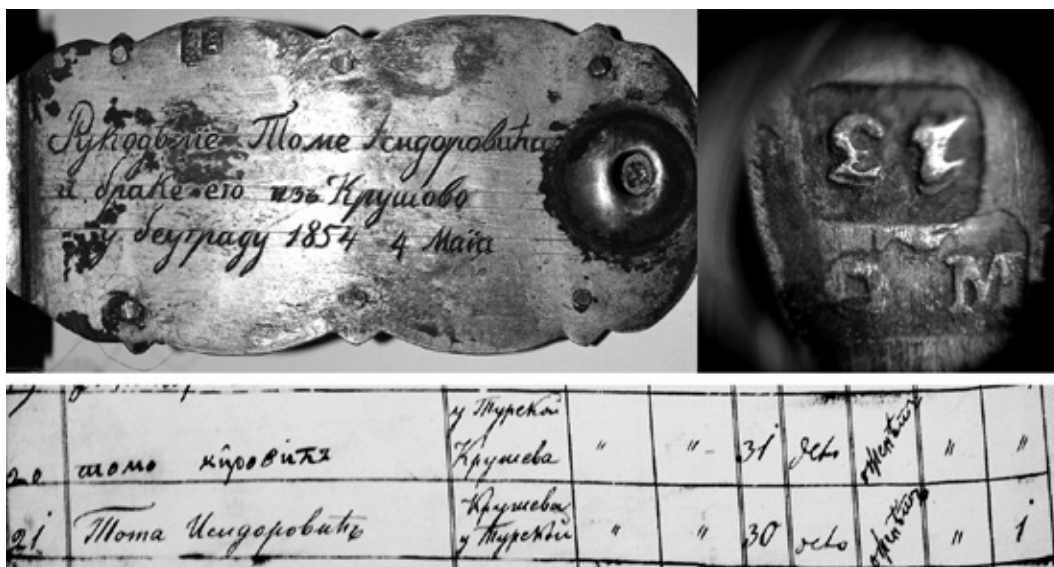 Рукодѣлїе Томе Исидоровића
и браке его изъ Крушово
у беуграду 1854 4 Маїа
13
П М
у Турской
20 томо кїровићъ Крушева " " 31 " "
21 Тома Исидоровићъ Крушева у Турской " " 30 " 1